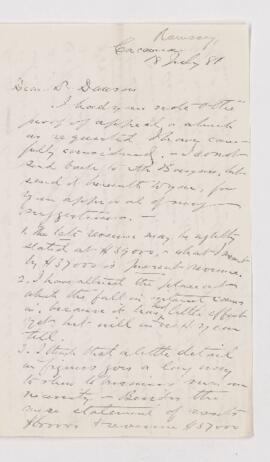 Ramsay,
Cacouna
18 July 81
Dear Dr Dawson
I had your note & the
proof of appeal, a which
as requested I have care-
fully considered, and do not
send back to Mr
send it herewith to you, for
your approval of my
suggestions. —
1. The late revenue may be rightly
stated at $39000, - what I meant
by $37000 is present revenue.
2. I have altered the place at
which the fall in interest comes
in, because it has little effect
yet but will in next year
till.
3. I think that a little detail
in figures goes a long way
to show to business men our
necessity - Besides the
mere statement of
$40000 & revenue $37000